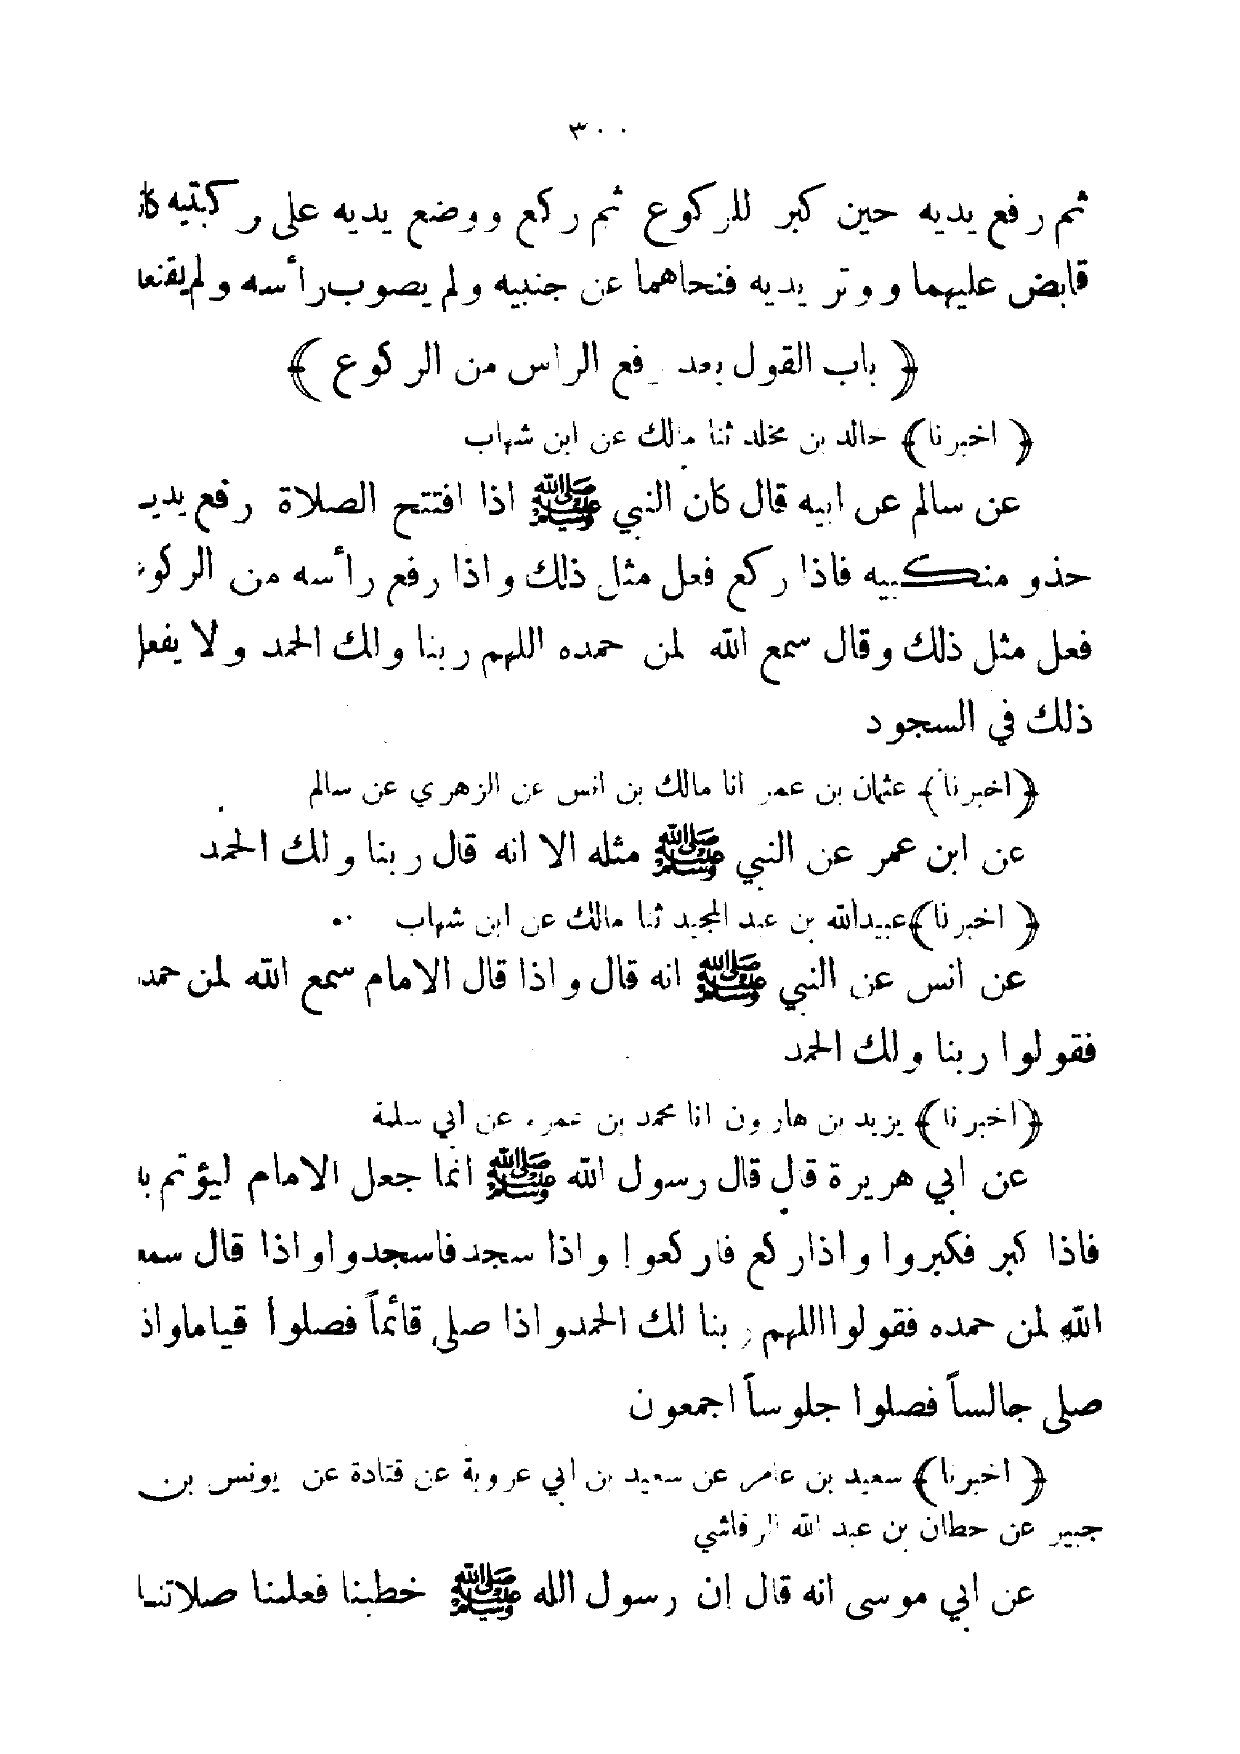 ٣٠٠
ثم رفع يديه حين كبر للركوع ثم ركع ووضع يديه على ركبتيه كا
قابض عليهما ووتر يديه فنحاهما عن جنبيه ولم يصوب رأسه ولم يقنعه
﴿ باب القول بعد رفع الراس من الركوع ﴾
﴿ اخبرنا ﴾ خالد بن مخلد ثنا مالك عن ابن شهاب
عن سالم عن ابيه قال كان النبي ﷺ اذا افتتح الصلاة رفع يديه
حذو منكبيه فاذا ركع فعل مثل ذلك واذا رفع رأسه من الركوع
فعل مثل ذلك وقال سمع الله لمن حمده اللهم ربنا ولك الحمد ولا يفعل
ذلك في السجود
﴿اخبرنا﴾ عثمان بن عمر انا مالك بن انس عن الزهري عن سالم
عن ابن عمر عن النبي ﷺ مثله الا انه قال ربنا ولك الحمد
﴿ اخبرنا ﴾عبيدالله بن عبد المجيد ثنا مالك عن ابن شهاب
عن انس عن النبي ﷺ انه قال واذا قال الامام سمع الله لمن حمده
فقولوا ربنا ولك الحمد
﴿اخبرنا﴾ يزيد بن هارون انا محمد بن عمرو عن ابي سلمة
عن ابي هريرة قال قال رسول الله ﷺ انما جعل الامام ليؤتم به
فاذا كبر فكبروا واذا ركع فاركعوا واذا سجد فاسجدوا واذا قال سمع
الله لمن حمده فقولوا اللهم ربنا لك الحمد واذا صلى قائماً فصلوا قياما واذا
صلى جالساً فصلوا جلوساً اجمعون
﴿ اخبرنا ﴾ سعيد بن عامر عن سعيد بن ابي عروبة عن قتادة عن يونس بن
جبير عن حطان بن عبد الله الرقاشي
عن ابي موسى انه قال إن رسول الله ﷺ خطبنا فعلمنا صلاتنا